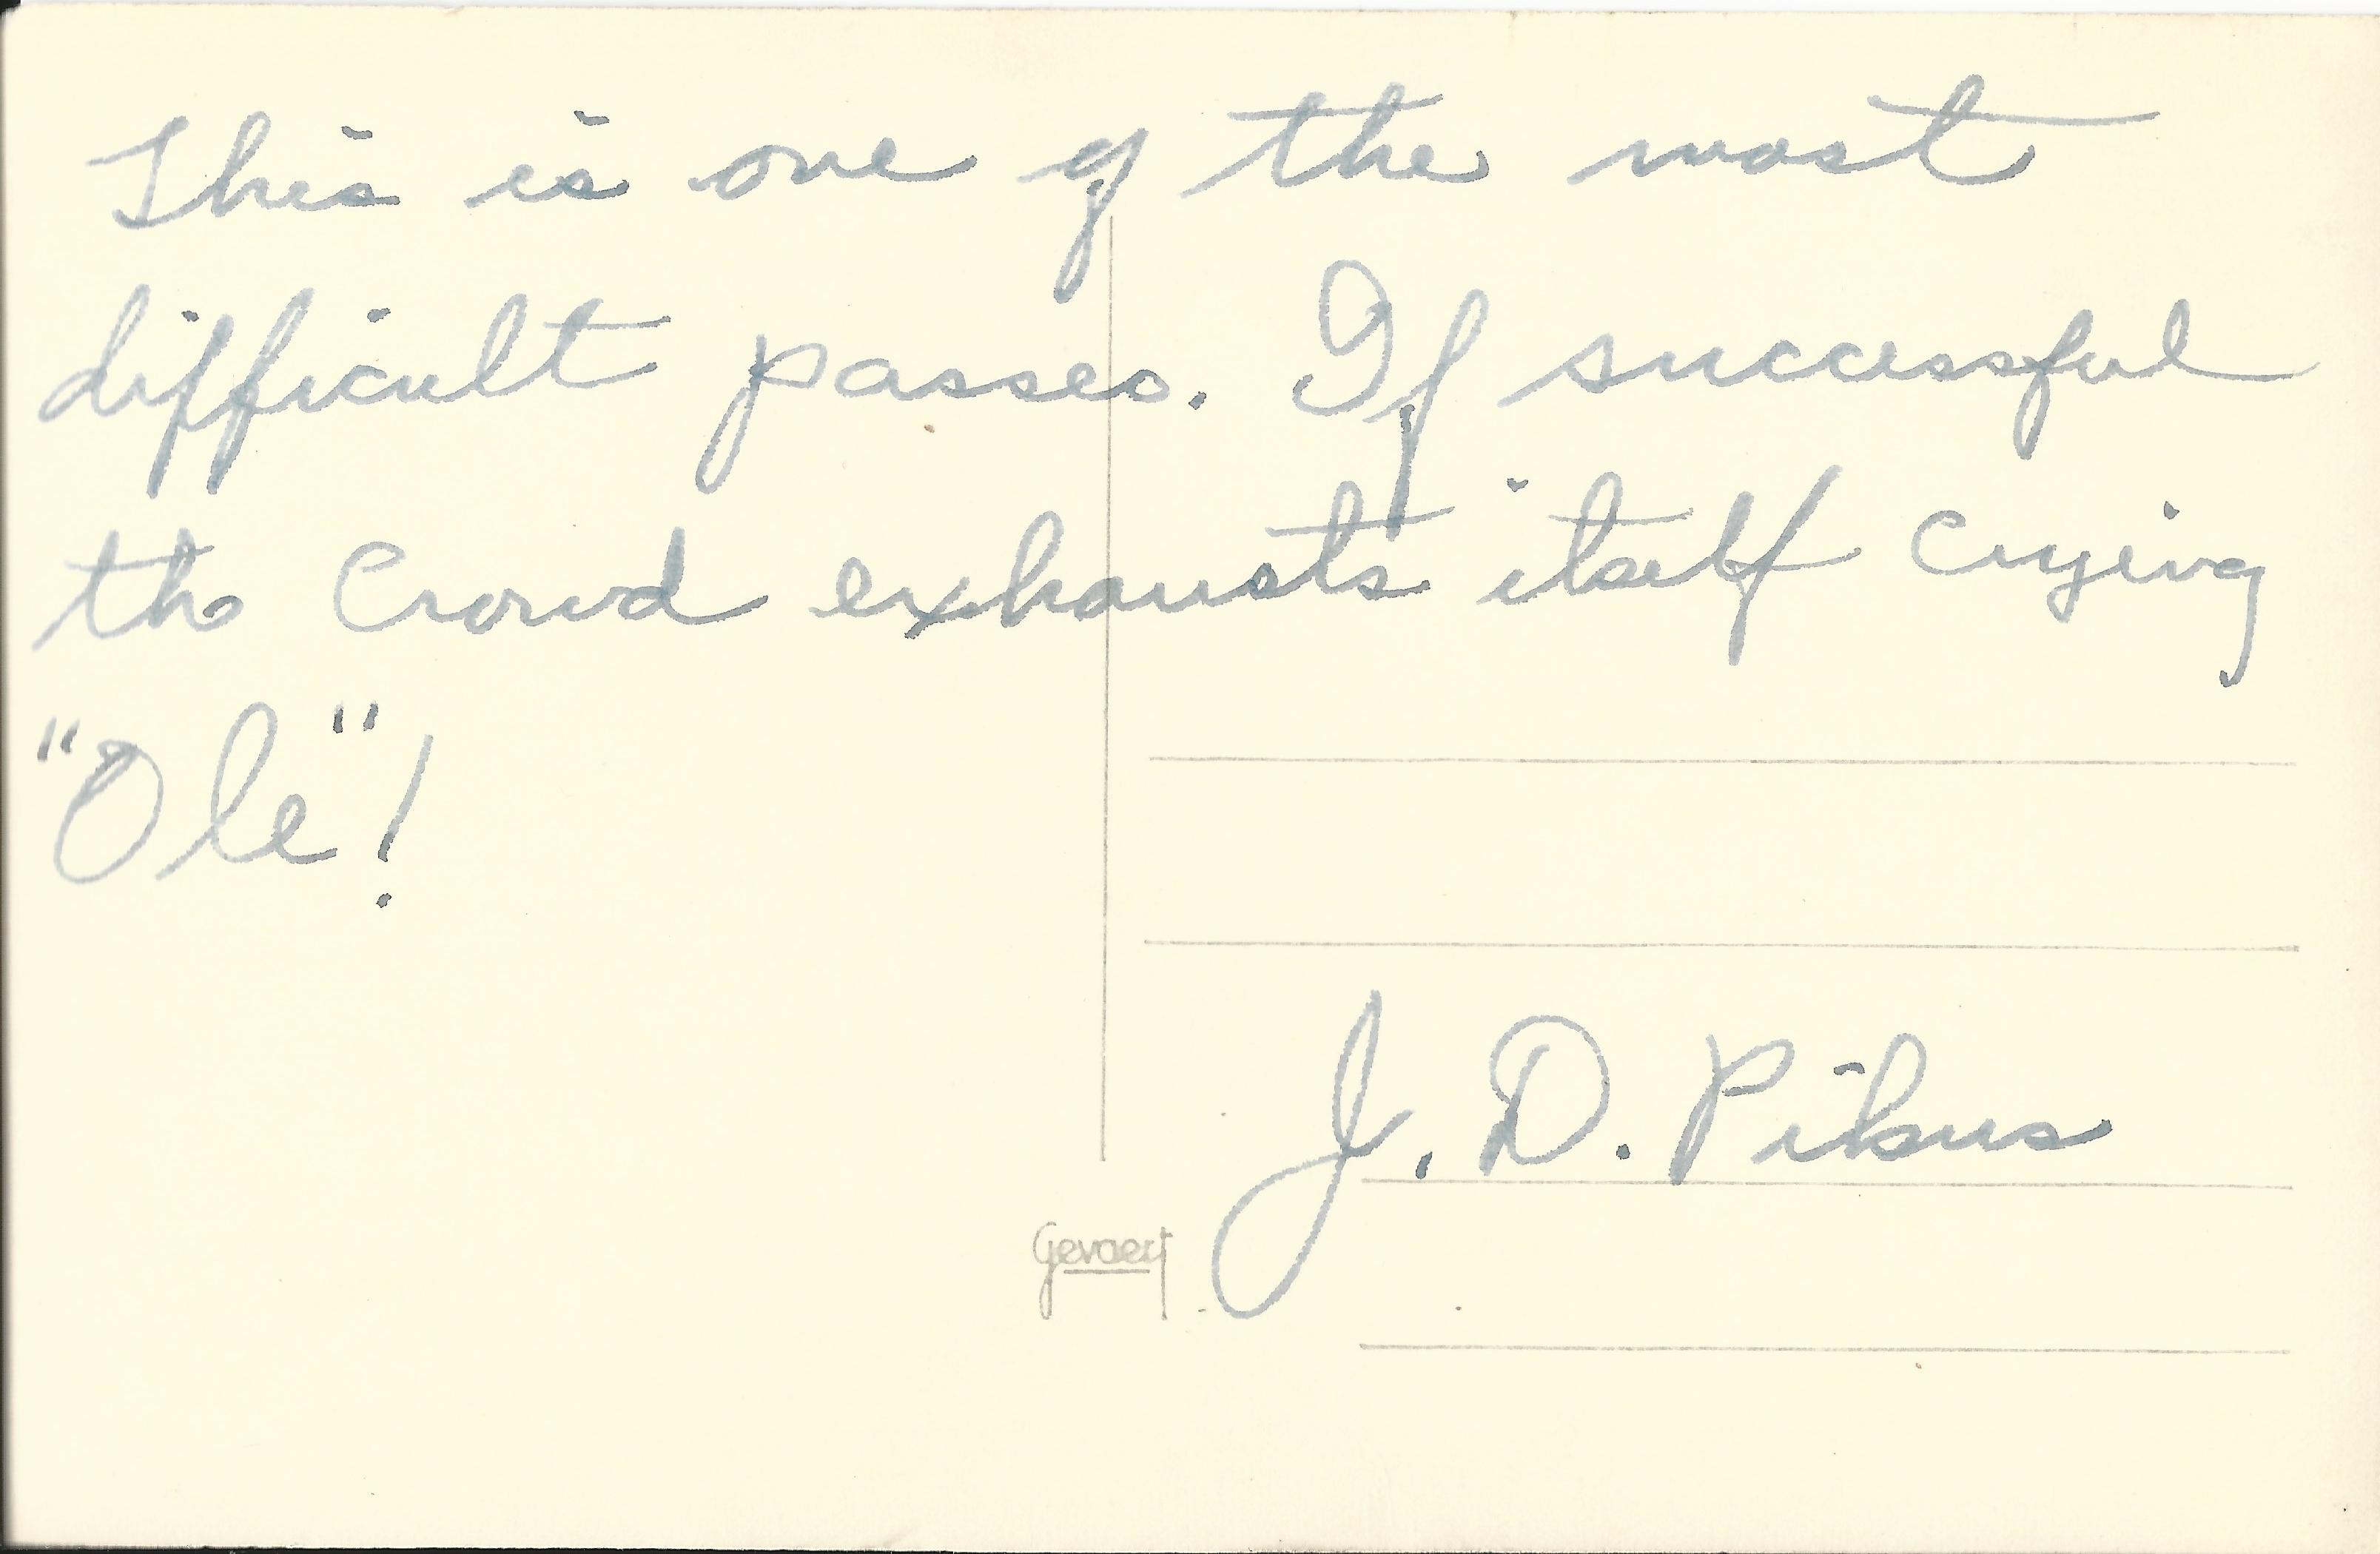 This is one of the most
difficult passes. If successful
the Crowd exhausts itself crying
"Ole"!
J. D. Pikus
Gevaert